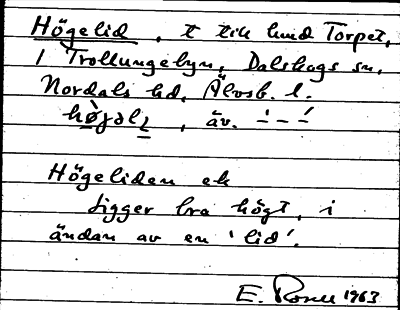 Högelid, t till hmd Torpet,
1 Trollungebyn, Dalskogs sn,
Nordals hd, Älvsb. l.
, äv.
Högeliden ek
Ligger bra högt, i
ändan av en 'lid'.
E. 1963